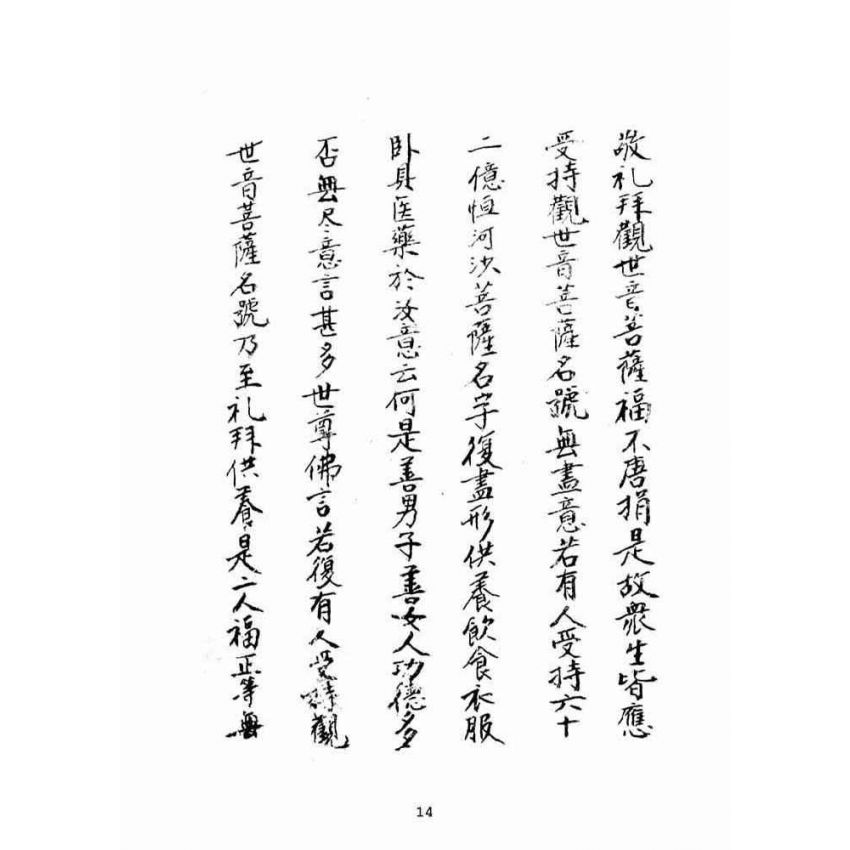 敬礼拜觀世音菩薩福不唐捐是故眾生皆應
受持觀世音菩薩名號無盡意若有人受持六十
二億恒河沙菩薩名字復盡形供養飲食衣服
卧具医藥於汝意云何是善男子善女人功德多
否無尽意言甚多世尊佛言若復有人受持觀
世音菩薩名號乃至礼拜供養是二人福正等無
14